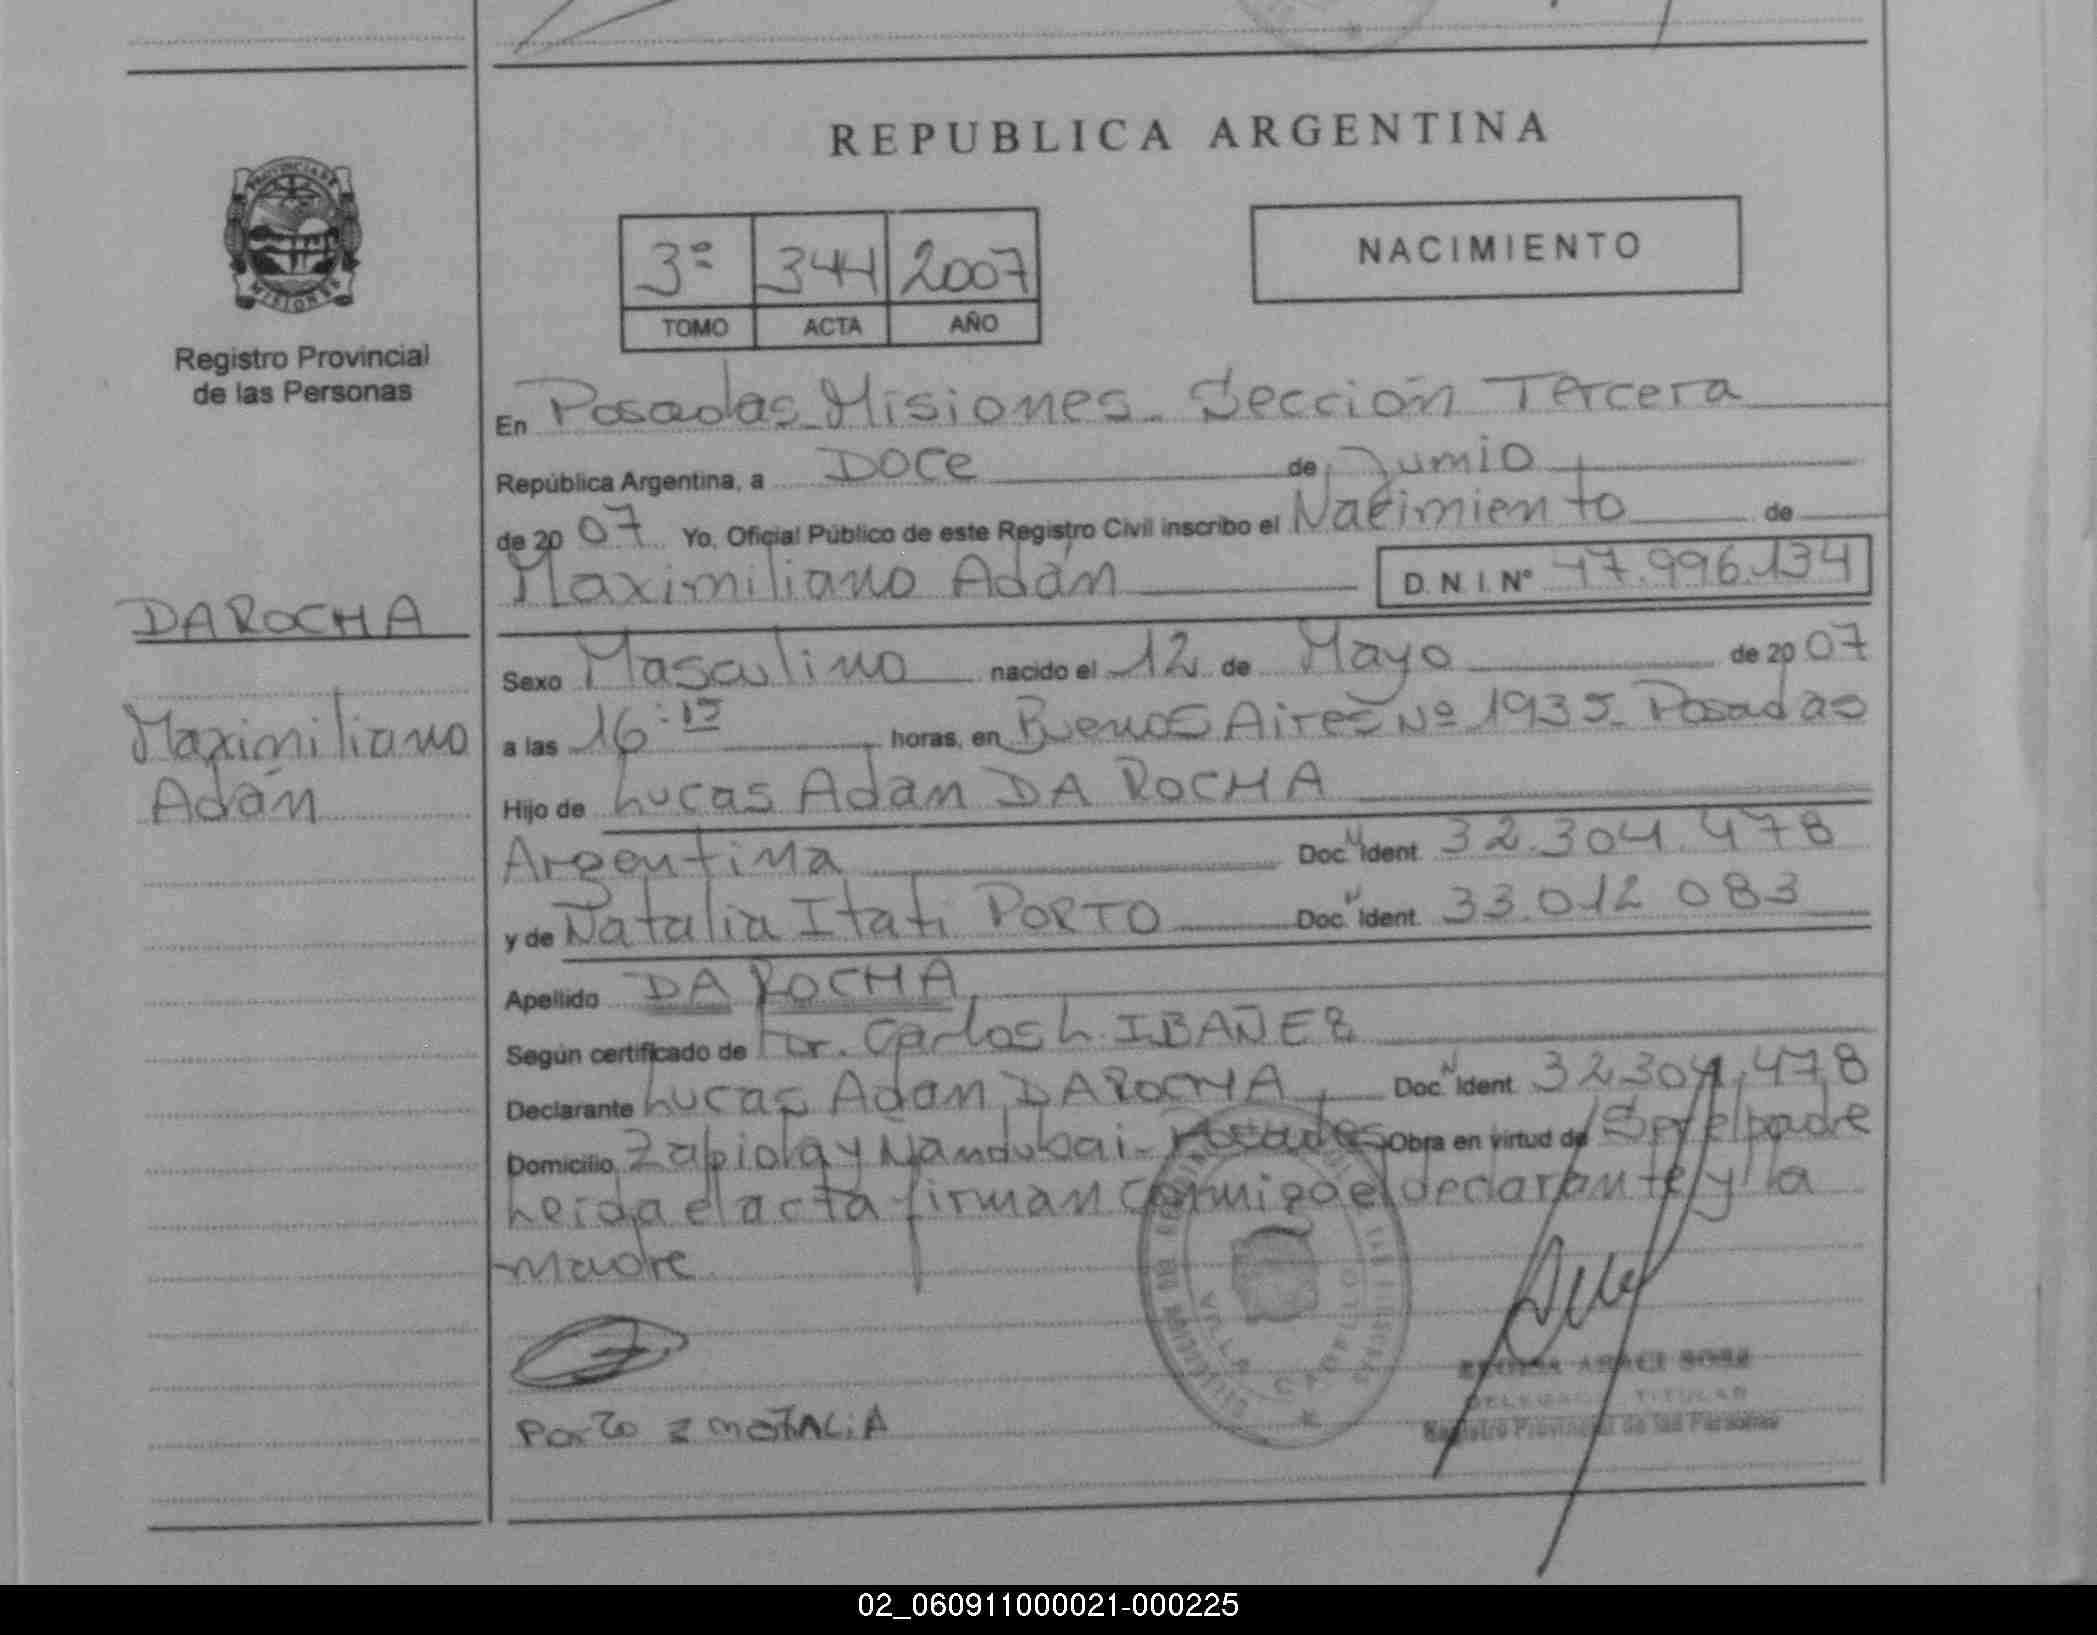 REPUBLICA ARGENTINA
PROVINCIA DE
MISIONES
Registro Provincial
de las Personas
3º 344 2007
TOMO ACTA AÑO
NACIMIENTO
En Posadas Misiones - Sección Tercera
República Argentina, a Doce de Junio
de 2007 Yo, Oficial Público de este Registro Civil inscribo el Nacimiento de
Maximiliano Adán D.N.I.Nº 47.996.134
DA ROCHA
Maximiliano
Adán
Sexo Masculino nacido el 12 de Mayo de 2007
a las 16:15 horas, en Buenos Aires Nº 1935 - Posadas
Hijo de Lucas Adan DA ROCHA
Argentina Doc. N Ident. 32.304.478
y de Natalia Itati PORTO Doc. N Ident. 33.012.083
Apellido DA ROCHA
Según certificado de Dr. Carlos L. IBAÑEZ
Declarante Lucas Adan DA ROCHA Doc. N Ident. 32.304.478
Domicilio Zapiola y Ñandubai - Posadas Obra en virtud de Ser el padre
Leida el acta firman conmigo el declarante y la
madre
VILLA CABELLO
Porto Natalia
SOSA
DELEGADA TITULAR
Registro Provincial de las Personas
02_060911000021-000225